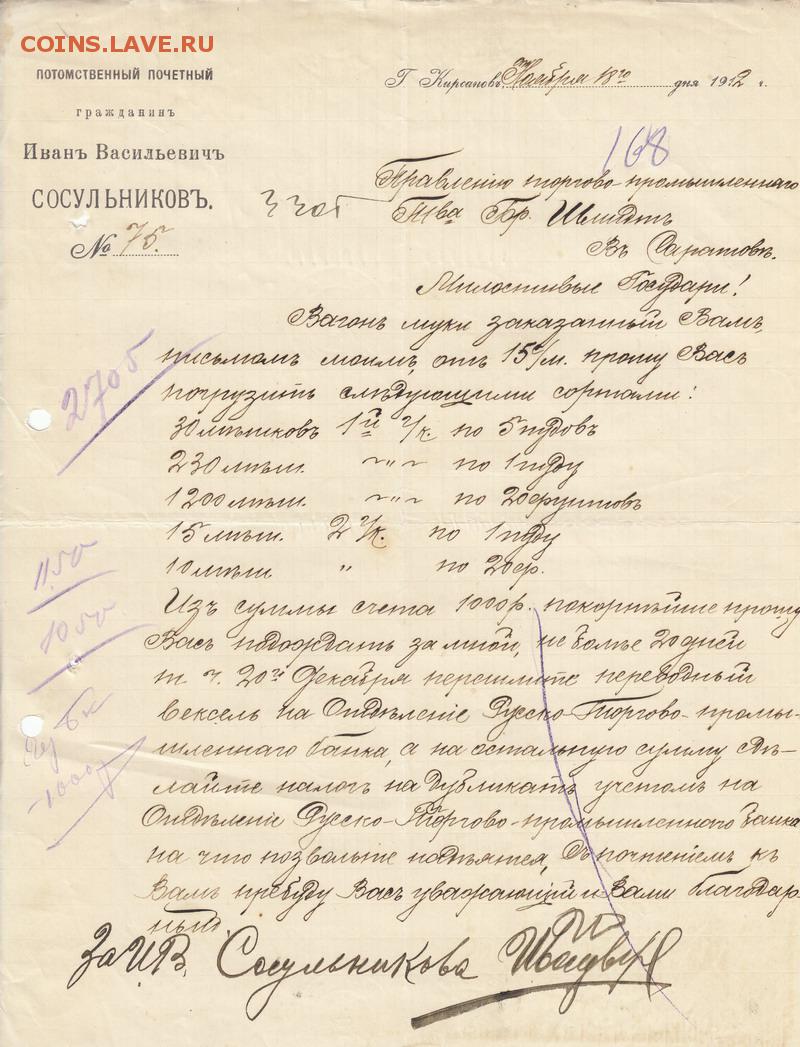 COINS.LAVE.RU
ПОТОМСТВЕННЫЙ ПОЧЕТНЫЙ
гражданинъ
Иванъ Васильевичъ
СОСУЛЬНИКОВЪ.
№ 75.
Г. Кирсановъ, Ноября 18го дня 1912 г.
168
Правленію торгово-промышленнаго
Тва Бр. Шмидтъ
Въ Саратовъ.
Милостивые Государи!
Вагонъ муки заказанный Вамъ,
письмомъ моимъ, отъ 15 с/м. прошу Васъ
погрузить слѣдующими сортами:
2705
30 мѣшковъ 1й г/к. по 5 пудовъ
230 мѣш. " по 1 пуду
1200 мѣш. " по 20 фунтовъ
15 мѣш. 2 г/к. по 1 пуду
10 мѣш. " по 20 ф.
1150
Изъ суммы счета 1000 р. покорнѣйше прошу
1050
Васъ подождать за мной, не болѣе 20 дней
т. ч. 20го Декабря перешлите переводный
вексель на Отдѣленіе Русско-Торгово-промы-
шленнаго банка, а на остальную сумму дѣ-
лайте налог на дубликатъ учетомъ на
-1000р
Отдѣленіе Русско-Торгово-промышленнаго банка
на что позвольте надѣятся, Съ почтеніемъ къ
Вамъ пребуду Васъ уважающій и Вами благодар-
ный.
За И.В. Сосульникова